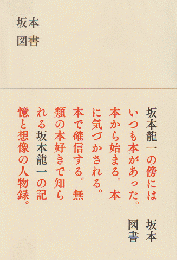 坂本
図書
坂本図書
坂本龍一の傍には
いつも本があった。
本から始まる。本
に気づかされる。
本で確信する。無
類の本好きで知ら
れる坂本龍一の記
憶と想像の人物録。